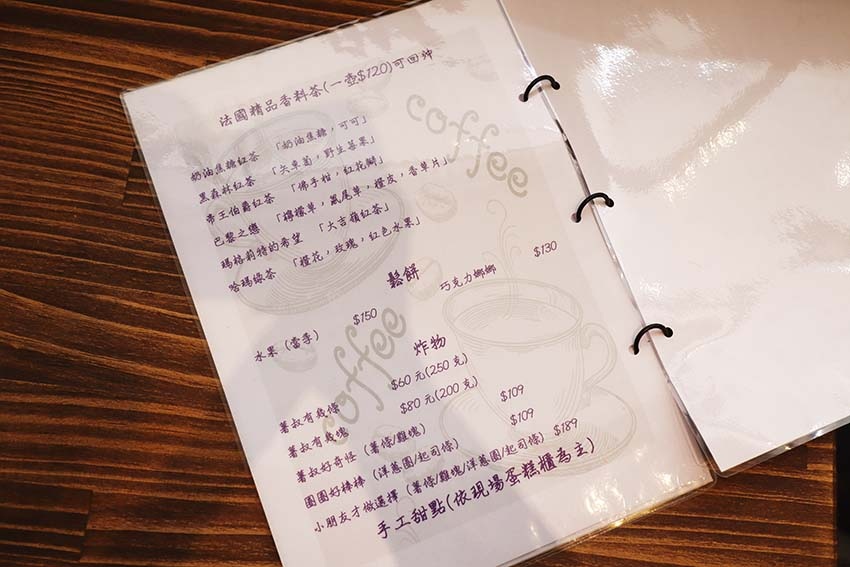 法國精品香料茶(一壺$120)可回沖
coffee
奶油焦糖紅茶 「奶油焦糖，可可」
黑森林紅茶 「矢車菊，野生莓果」
帝王伯爵紅茶 「佛手柑，紅花瓣」
巴黎之戀 「檸檬草，鼠尾草，橙皮，香草片」
瑪格莉特的希望 「大吉嶺紅茶」
哈瑪綠茶 「橙花，玫瑰，紅色水果」
鬆餅
水果（當季） $150 巧克力娜娜 $130
coffee
炸物
薯叔有幾條 $60元(250克)
薯叔有幾塊 $80元(200克)
薯叔好奇怪 （薯條/雞塊） $109
圈圈好棒棒 （洋蔥圈/起司條） $109
小朋友才做選擇 （薯條/雞塊/洋蔥圈/起司條） $189
手工甜點(依現場蛋糕櫃為主)